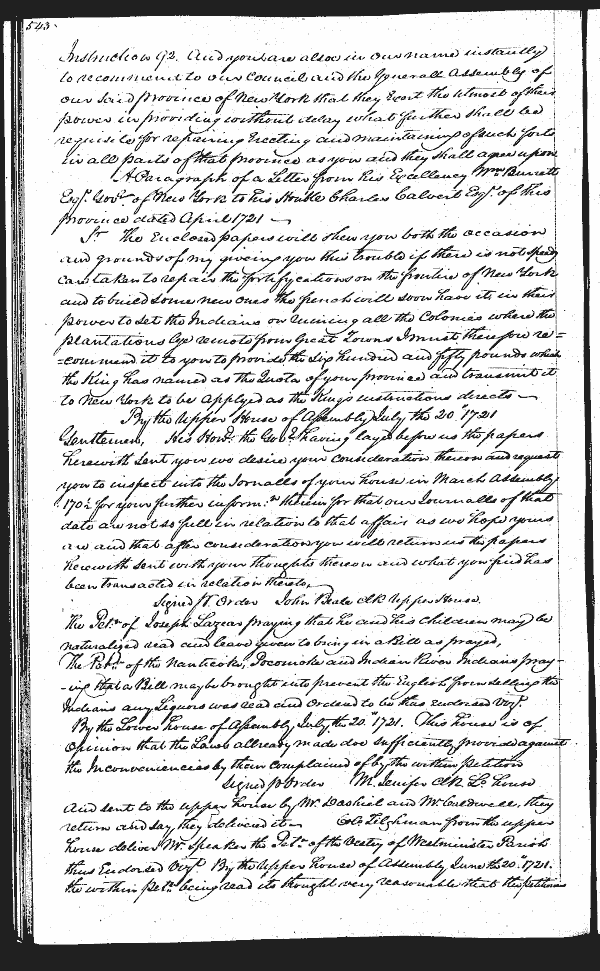 543.
Instruction 92. And you are also in our name instantly
to recommend to our Council and the Generall Assembly of
our said province of New York that they Exert the utmost of their
power in providing without delay what further shall be
requisite for repairing Erecting and maintaining of such forts
in all parts of that province as you and they shall agree upon
A Paragraph of a Letter from his Excellency Wm Burnett
Esqr. Govr. of New York to his Honble Charles Calvert Esqr. of this
province dated April 1721
Sr. The Enclosed papers will shew you both the occasion
and grounds of my giving you this trouble if there is not speedy
care taken to repair the fortifycations on the frontier of New York
and to build some new ones the french will soon have it in their
power to set the Indians on ruining all the Colonies where the
plantations lye remote from Great Towns I must therefore re=
=commend it to you to provide the Six hundred and fifty pounds which
the King has named as the Quota of your province and transmit it
to New York to be applyed as the King's instructions directs
By the Upper House of Assembly July the 20th 1721
Gentlemen, His Honr. the Govr. having layd before us the papers
herewith sent you we desire your consideration thereon and request
you to inspect into the Jornalls of your house in March Assembly
170 for your further inform.n therein for that our Journalls of that
date are not so full in relation to that affair as we hope yours
are and that after consideration you will return us the papers
herewith sent with your thoughts thereon and what you find has
been transacted in relation thereto,
Signed p. Order John Beale Clk Upper House.
the Petn. of Joseph Lazear praying that he and his Children may be
naturalized read and leave given to bring in a Bill as prayed,
The Petn. of the Nanticoke, Pocomoke and Indian River Indians pray-
-ing that a Bill may be brought into prevent the English from selling the
Indians any Liquors was read and Ordered to be thus endorsed Vizt.
By the Lower house of Assembly July the 20th 1721. This house is of
Opinion that the Laws allready made doe sufficiently provide against
the Inconveniencies by them complained of by the within petition
Signed p Order M. Jenifer Clk Lo. house
And sent to the upper house by Mr. Dashiel and Mr. Caldwell, they
return and say they delivered it Colo. Tilghman from the upper
house deliver Mr. Speaker the Petn. of the Vestry of Westminster Parish
thus Endorsed Vizt. By the Upper house of Assembly June the 20th 1721.
the within petn. being read its thought very reasonable that the petitions